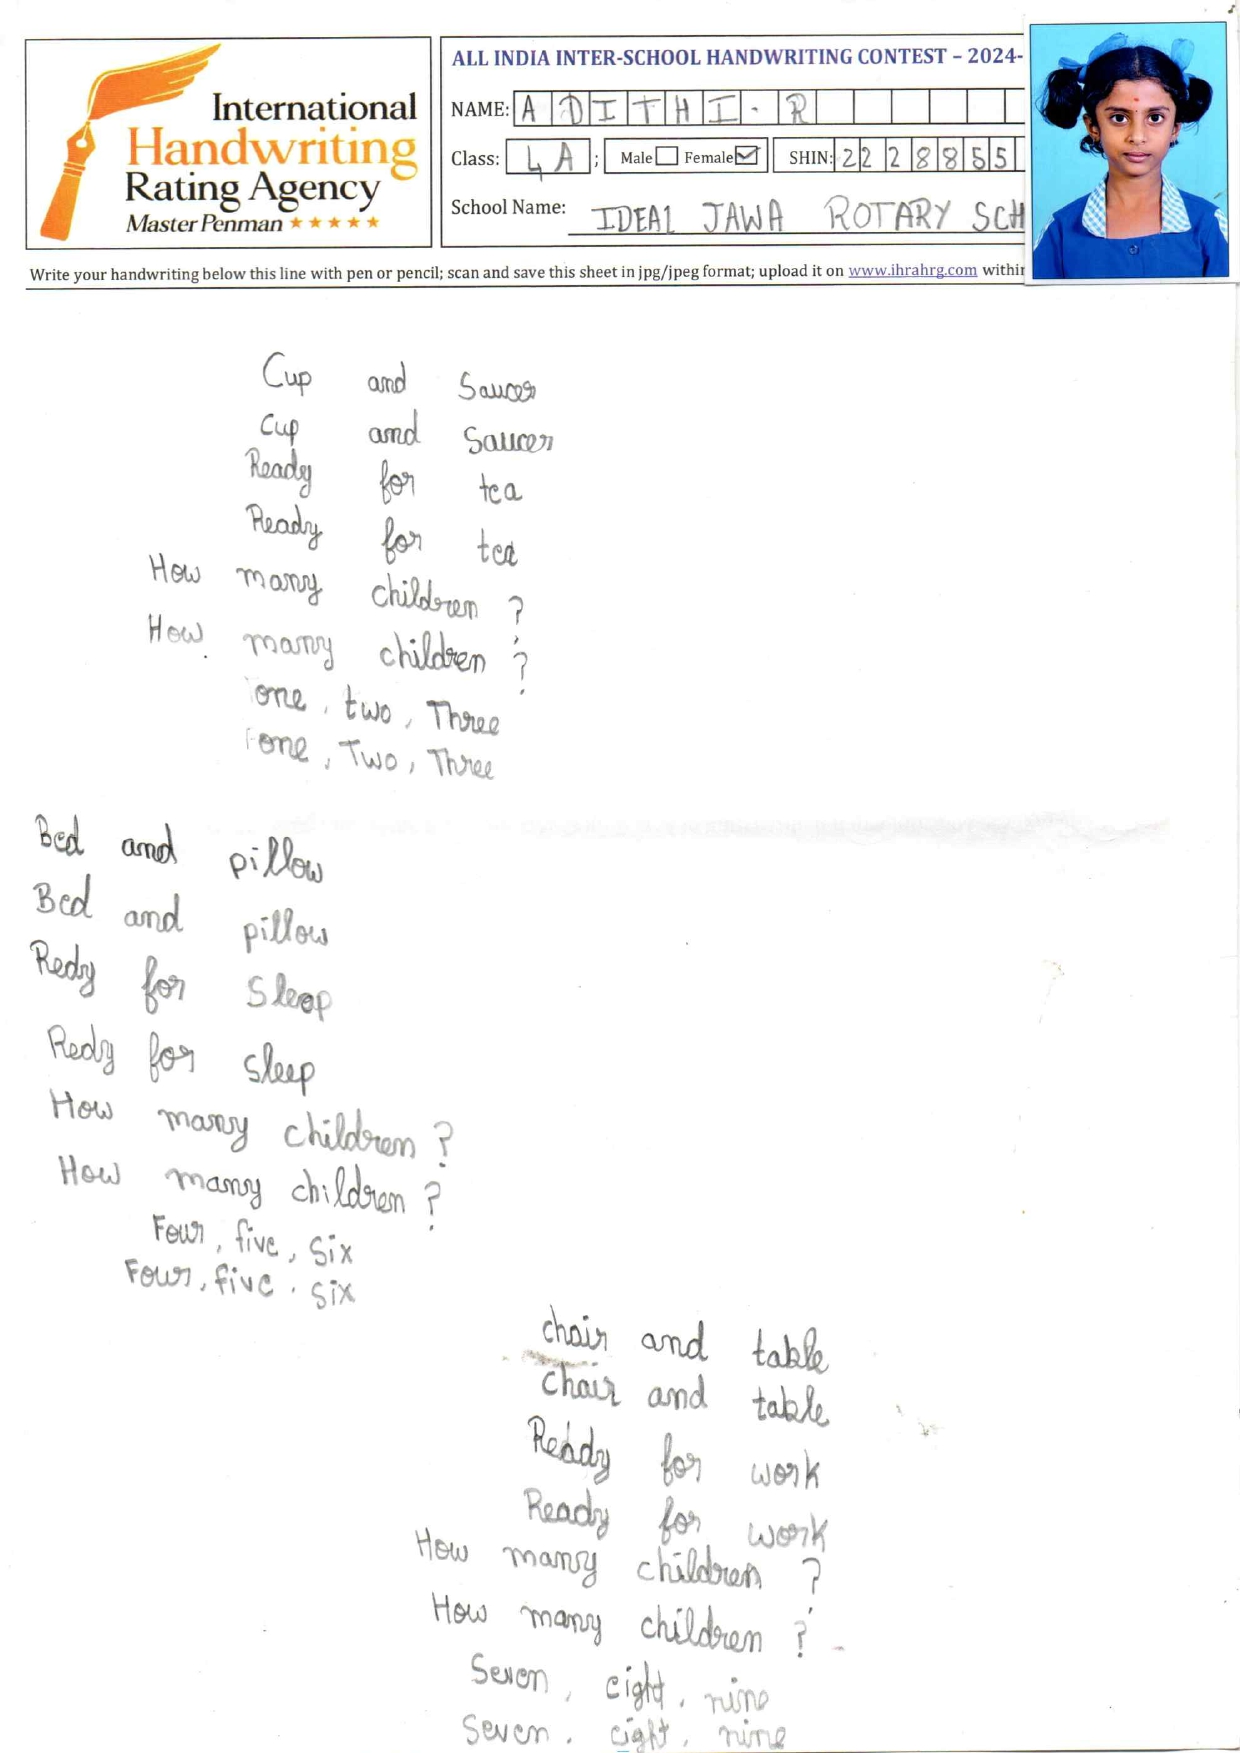 International
Handwriting
Rating Agency
Master Penman ★★★★★
ALL INDIA INTER-SCHOOL HANDWRITING CONTEST – 2024-
NAME: ADITHI.R
Class: 4 A ; Male Female SHIN: 2228855
School Name: IDEAL JAWA ROTARY SCH
Write your handwriting below this line with pen or pencil; scan and save this sheet in jpg/jpeg format; upload it on www.ihrahrg.com within
Cup and Saucer
Cup and Saucer
Ready for tea
Ready for tea
How many children ?
How many children ?
one, two, Three
one, Two, Three
Bed and pillow
Bed and pillow
Redy for Sleep
Redy for sleep
How many children ?
How many children ?
Four, five, six
Four, five, six
chair and table
chair and table
Ready for work
Ready for work
How many children ?
How many children ?
Seven, eight, nine
Seven, eight, nine